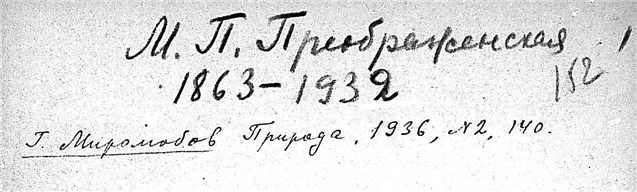 М. П. Преображенская
1863-1932
152
Г. Миромобов Природа, 1936, №2, 140.